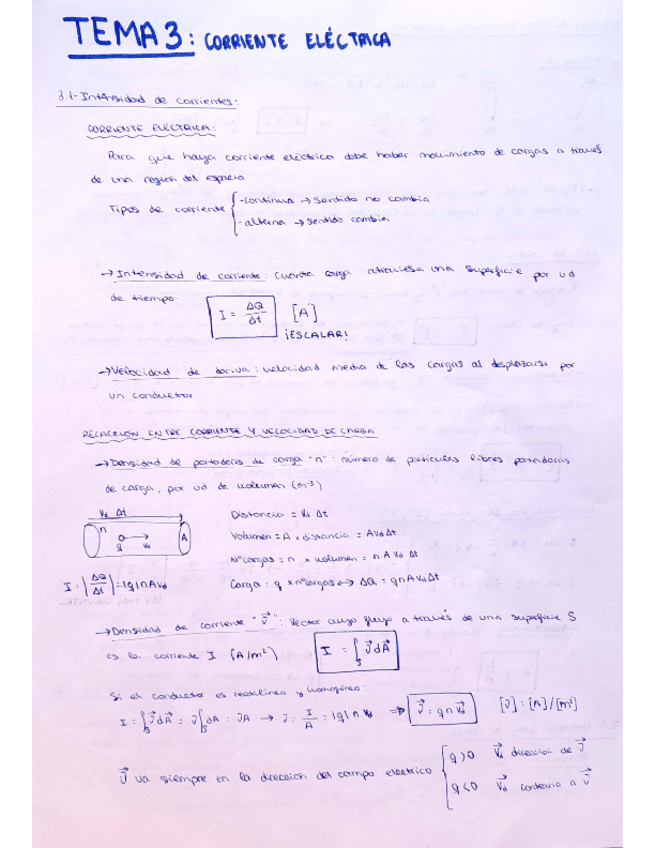 TEMA 3: CORRIENTE ELÉCTRICA
3.1- Intensidad de corrientes:
CORRIENTE ELÉCTRICA:
Para que haya corriente eléctrica debe haber movimiento de cargas a través
de una region del espacio
Tipos de corriente { -continua → sentido no cambia
-alterna → sentido cambia
→ Intensidad de corriente: Cuanta carga atraviesa una superficie por ud
de tiempo. I = ΔQ/Δt [A]
¡ESCALAR!
→ Velocidad de deriva: velocidad media de las cargas al desplazarse por
un conductor
RELACION ENTRE CORRIENTE Y VELOCIDAD DE CARGA
→ Densidad de portadores de carga "n": número de particulas libres portadoras
de carga, por ud de volumen (m⁻³)
Vd Δt
n q Vd A
Distancia = Vd Δt
Volumen = A × distancia = A Vd Δt
Nºcargas = n × volumen = n A Vd Δt
I = |ΔQ/Δt| = |q| n A Vd
Carga = q × nºcargas ↔ ΔQ = q n A Vd Δt
→ Densidad de corriente "J⃗": Vector cuyo flujo a través de una superficie S
es la corriente I (A/m²) I = ∫s J⃗ dA⃗
Si el conductor es rectilineo y homogéneo:
I = ∫s J⃗ dA⃗ = J ∫s dA = JA → J = I/A = |q| n Vd ⇒ J⃗ = q n V⃗d [J] = [A]/[m²]
J⃗ va siempre en la direccion del campo electrico { q > 0 V⃗d direccion de J⃗
q < 0 V⃗d contraria a J⃗